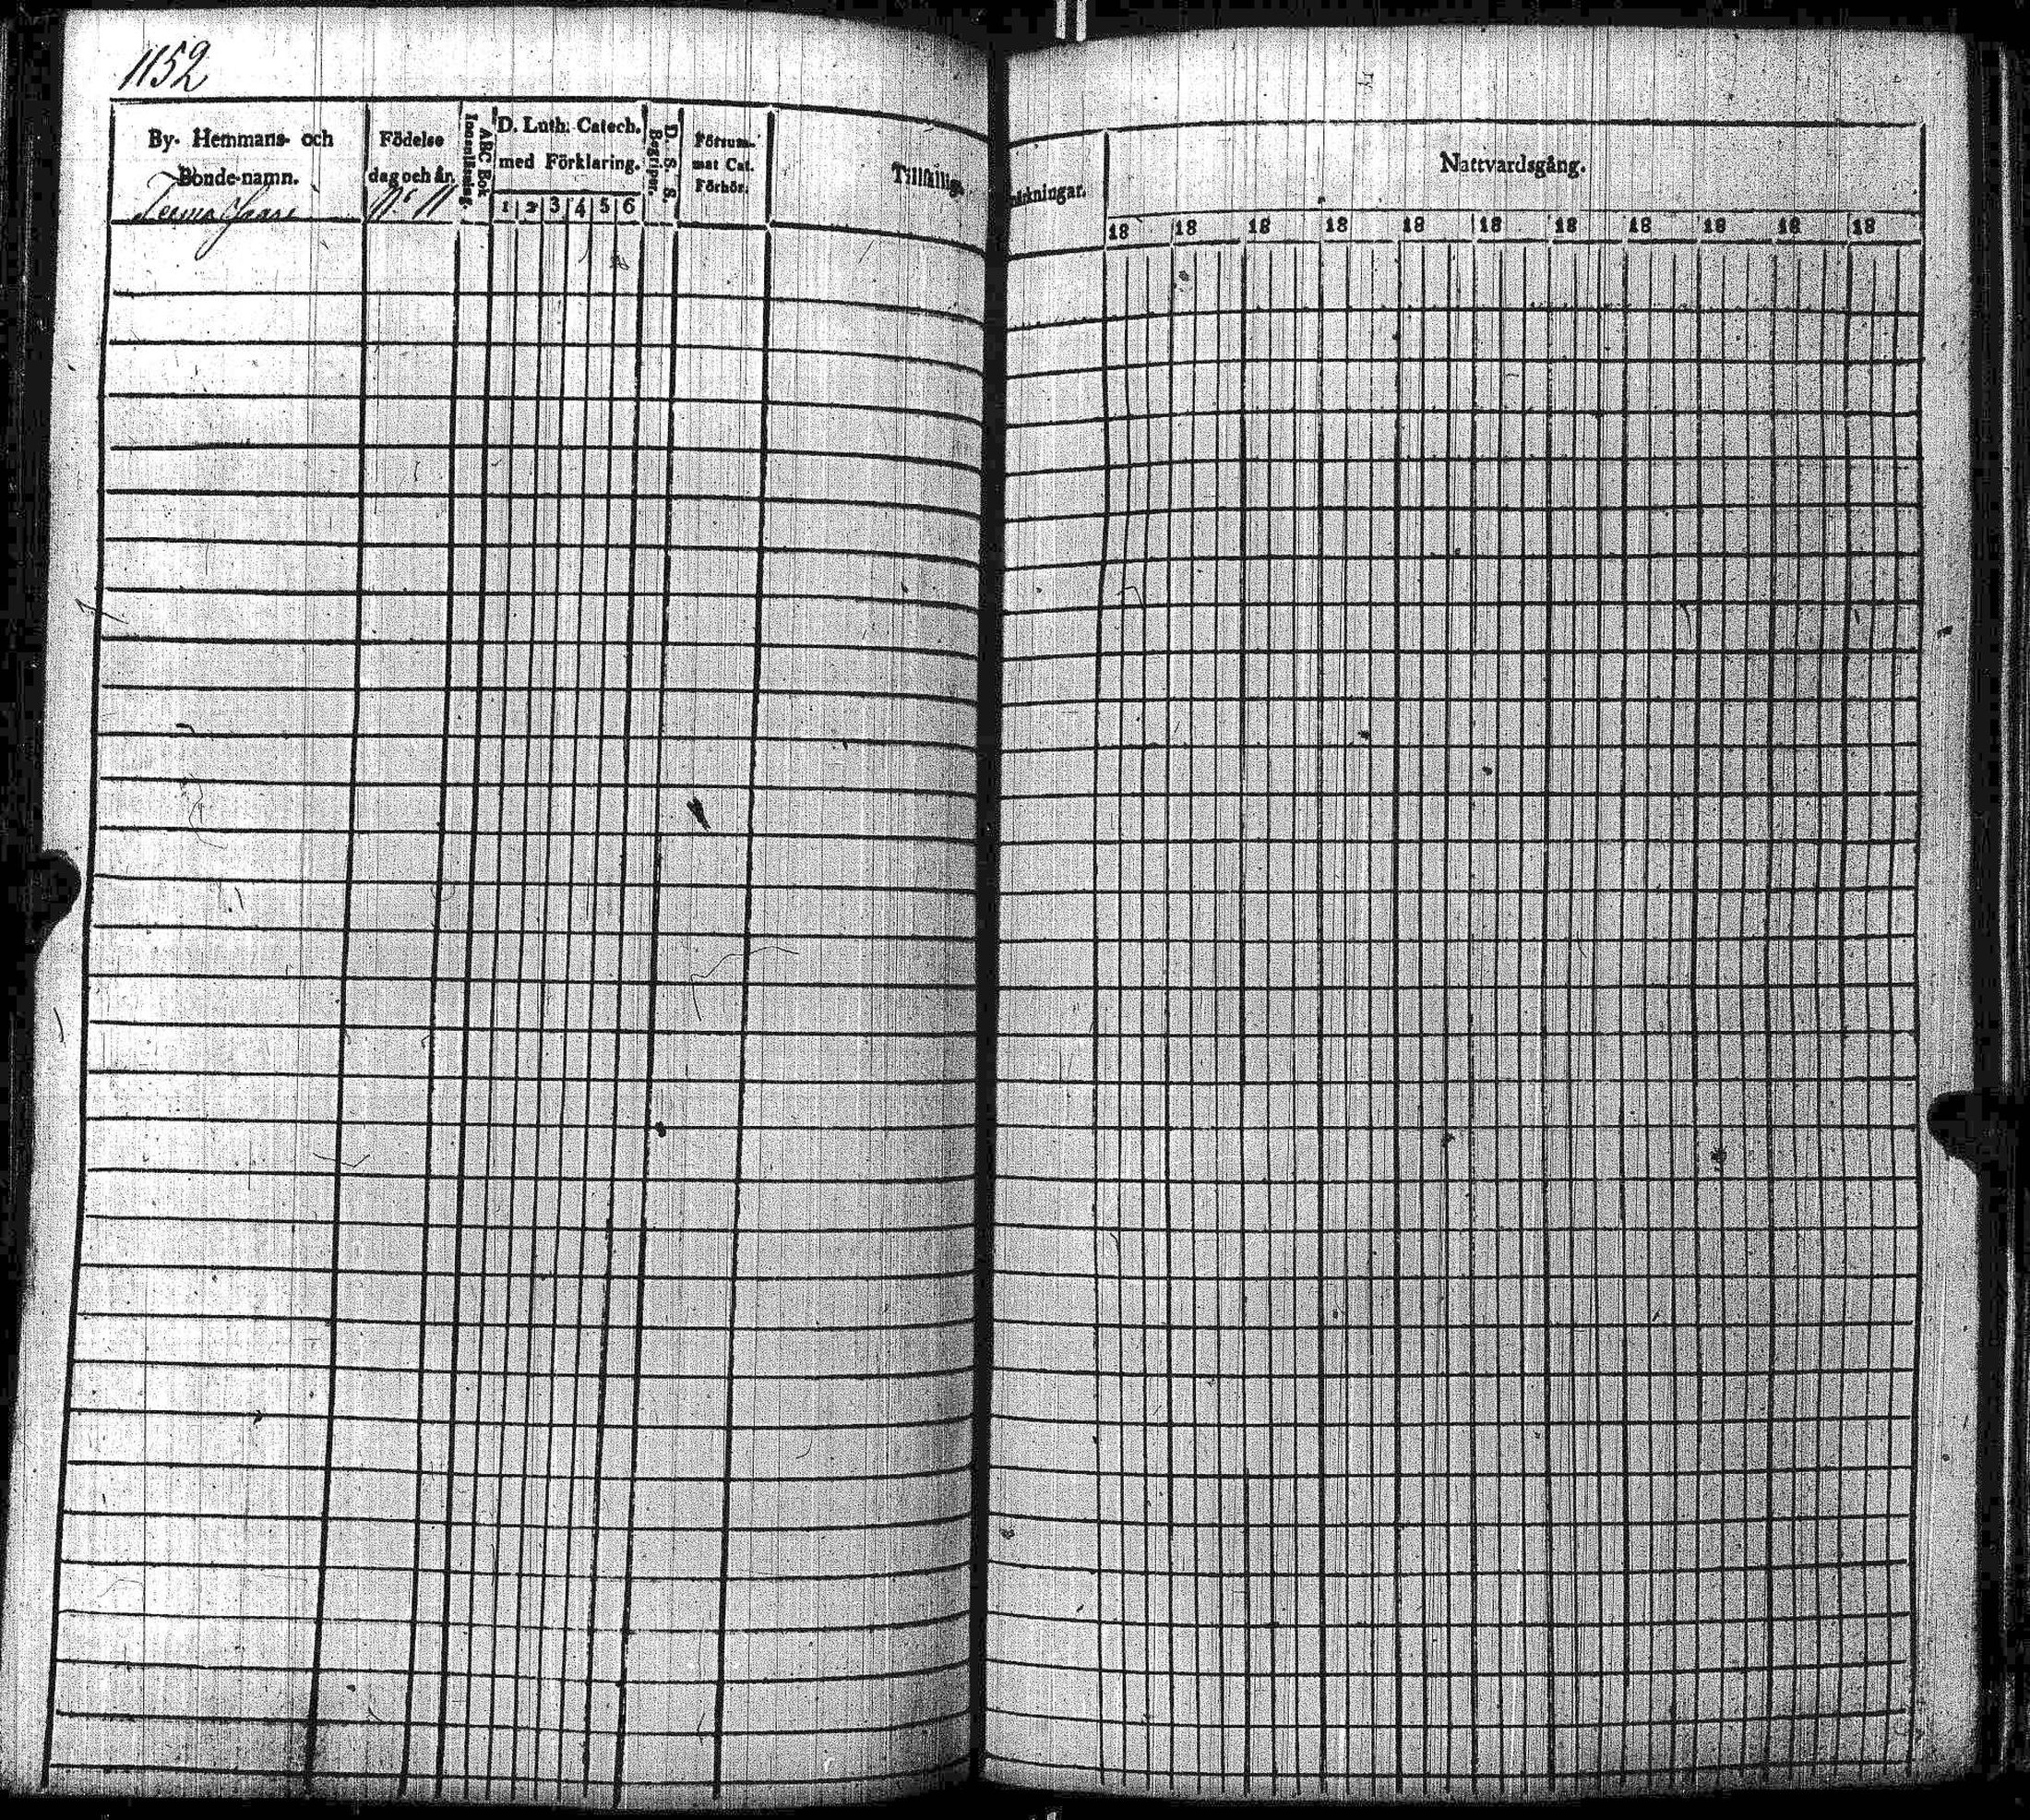 1152
By- Hemmans- och
Bonde-namn.
Födelse
dag och år.
No 11
ABC Bok
Innanläsning.
D. Luth. Catech.
med Förklaring.
1 2 3 4 5 6
D. S. S.
Begriper.
Försum-
mat Cat.
Förhör.
Tillfällige
märkningar.
Nattvardsgång.
18 18 18 18 18 18 18 18 18 18 18